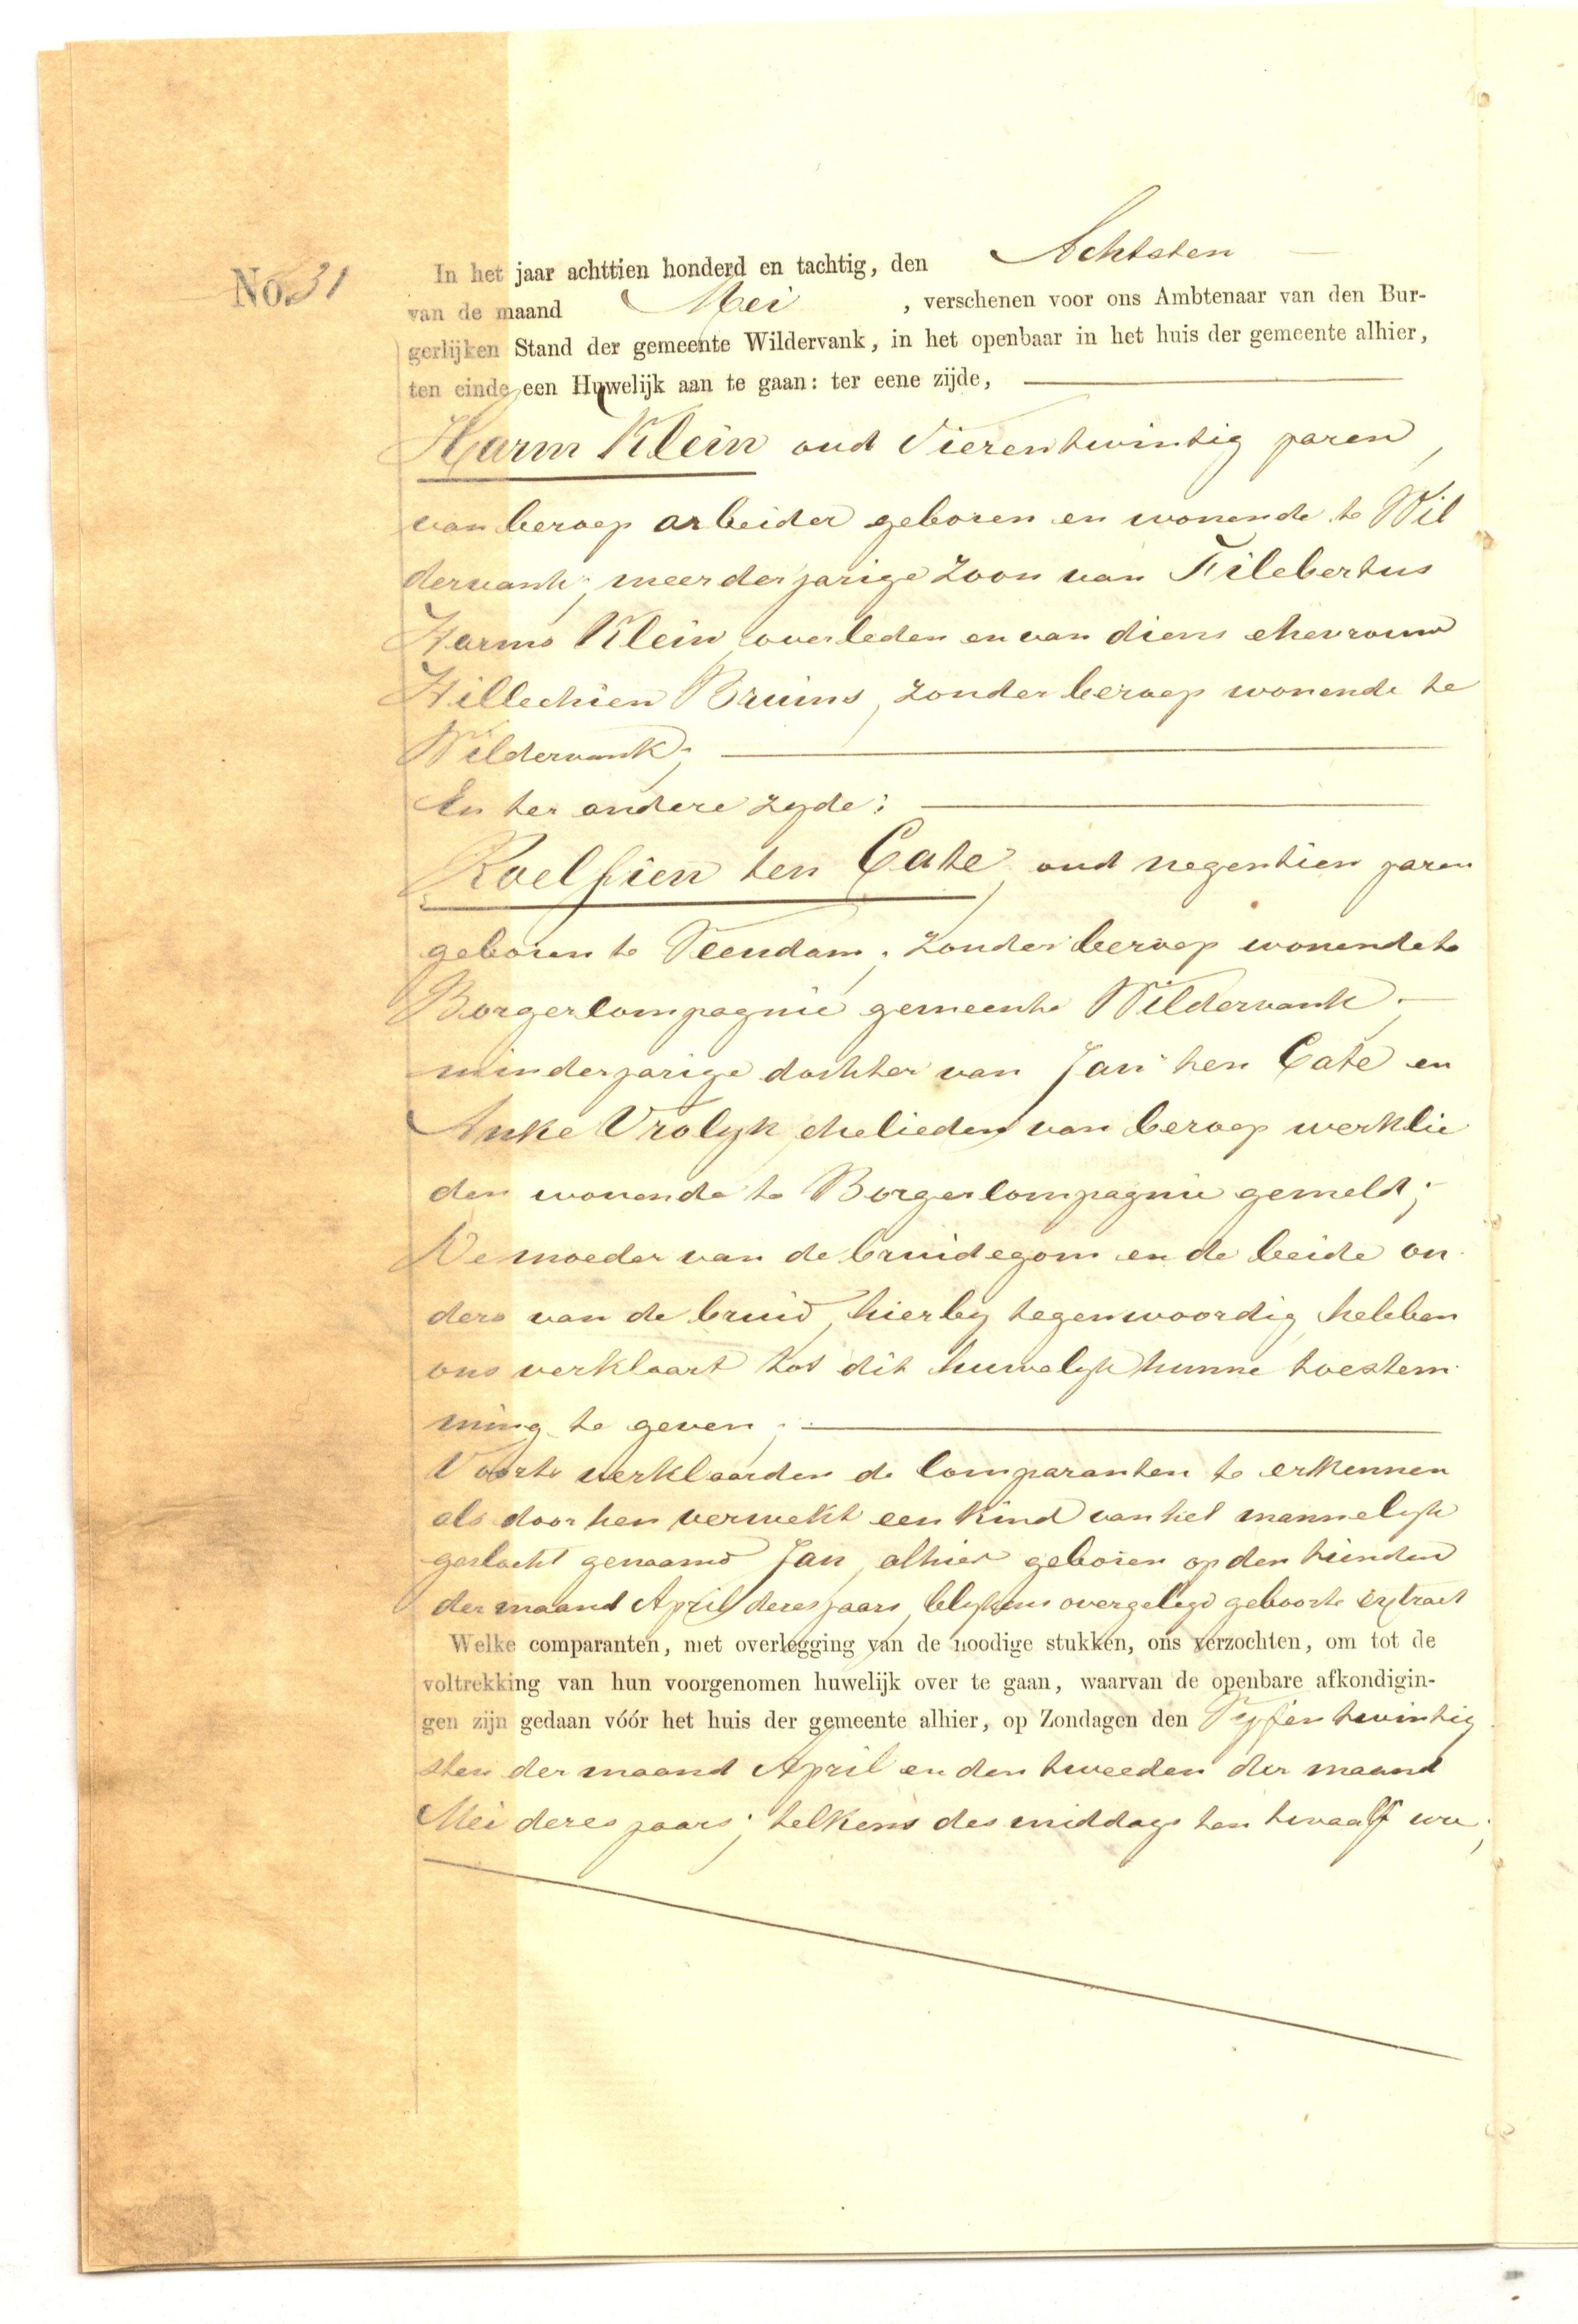 No. 31
In het jaar achttien honderd en tachtig, den Achtsten
van de maand Mei , verschenen voor ons Ambtenaar van den Bur-
gerlijken Stand der gemeente Wildervank, in het openbaar in het huis der gemeente alhier,
ten einde een Huwelijk aan te gaan: ter eene zijde,
Harm Klein oud Vierentwintig jaren,
van beroep arbeider geboren en wonende te Wil
dervank; meerderjarige zoon van Filebertus
Harms Klein, overleden en van diens ehevrouw
Hillechien Bruins, zonder beroep wonende te
Wildervank;
En ter andere zyde:
Roelfien ten Cate, oud negentien jaren
geboren te Veendam, zonder beroep wonende te
Borgercompagnie gemeente Wildervank;
minderjarige dochter van Jan ten Cate en
Anke Vrolyk, ehelieden van beroep werklie
den wonende te Borgercompagnie gemeld;
De moeder van de bruidegom en de beide ou
ders van de bruid, hierby tegenwoordig, hebben
ons verklaart tot dit huwelyk hunne toestem
ming te geven;
Voorts verklaarden de comparanten te erkennen
als door hen verwekt een kind van het mannelyk
geslacht genaamd Jan, alhier geboren op den tienden
der maand April dezes jaars, blykens overgelegd geboorte extract
Welke comparanten, met overlegging van de noodige stukken, ons verzochten, om tot de
voltrekking van hun voorgenomen huwelijk over te gaan, waarvan de openbare afkondigin-
gen zijn gedaan vóór het huis der gemeente alhier, op Zondagen den Vyfentwintig
sten der maand April en den tweeden der maand
Mei dezes jaars; telkens des middags ten twaalf ure;